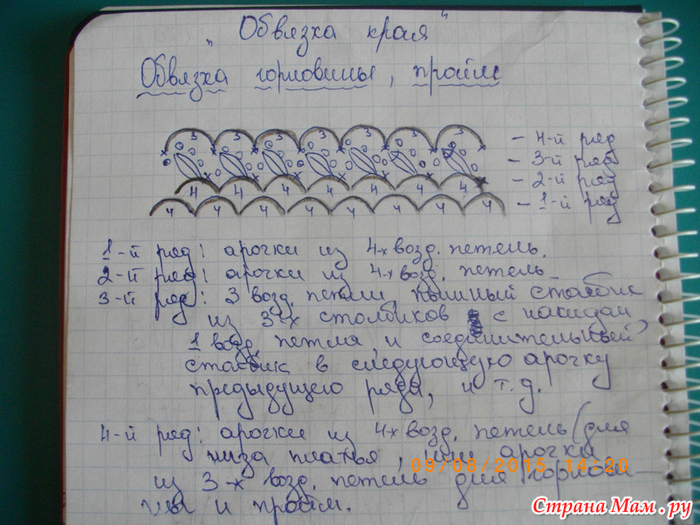 "Обвязка края"
Обвязка горловины, пройм
3 3 3 3 3 3 3
4 4 4 4 4 4 4
4 4 4 4 4 4 4 4
- 4-й ряд
- 3-й ряд
- 2-й ряд
- 1-й ряд
1-й ряд: арочки из 4-х возд. петель.
2-й ряд: арочки из 4-х возд. петель.
3-й ряд: 3 возд. петли, пышный столбик
из 3-х столбиков с накидом,
1 возд. петля и соединительный
столбик в следующую арочку
предыдущего ряда, и т.д.
4-й ряд: арочки из 4-х возд. петель (для
низа платья, или арочки
из 3-х возд. петель для горлови-
ны и пройм.
09/08/2015 14:20
Страна Мам.ру